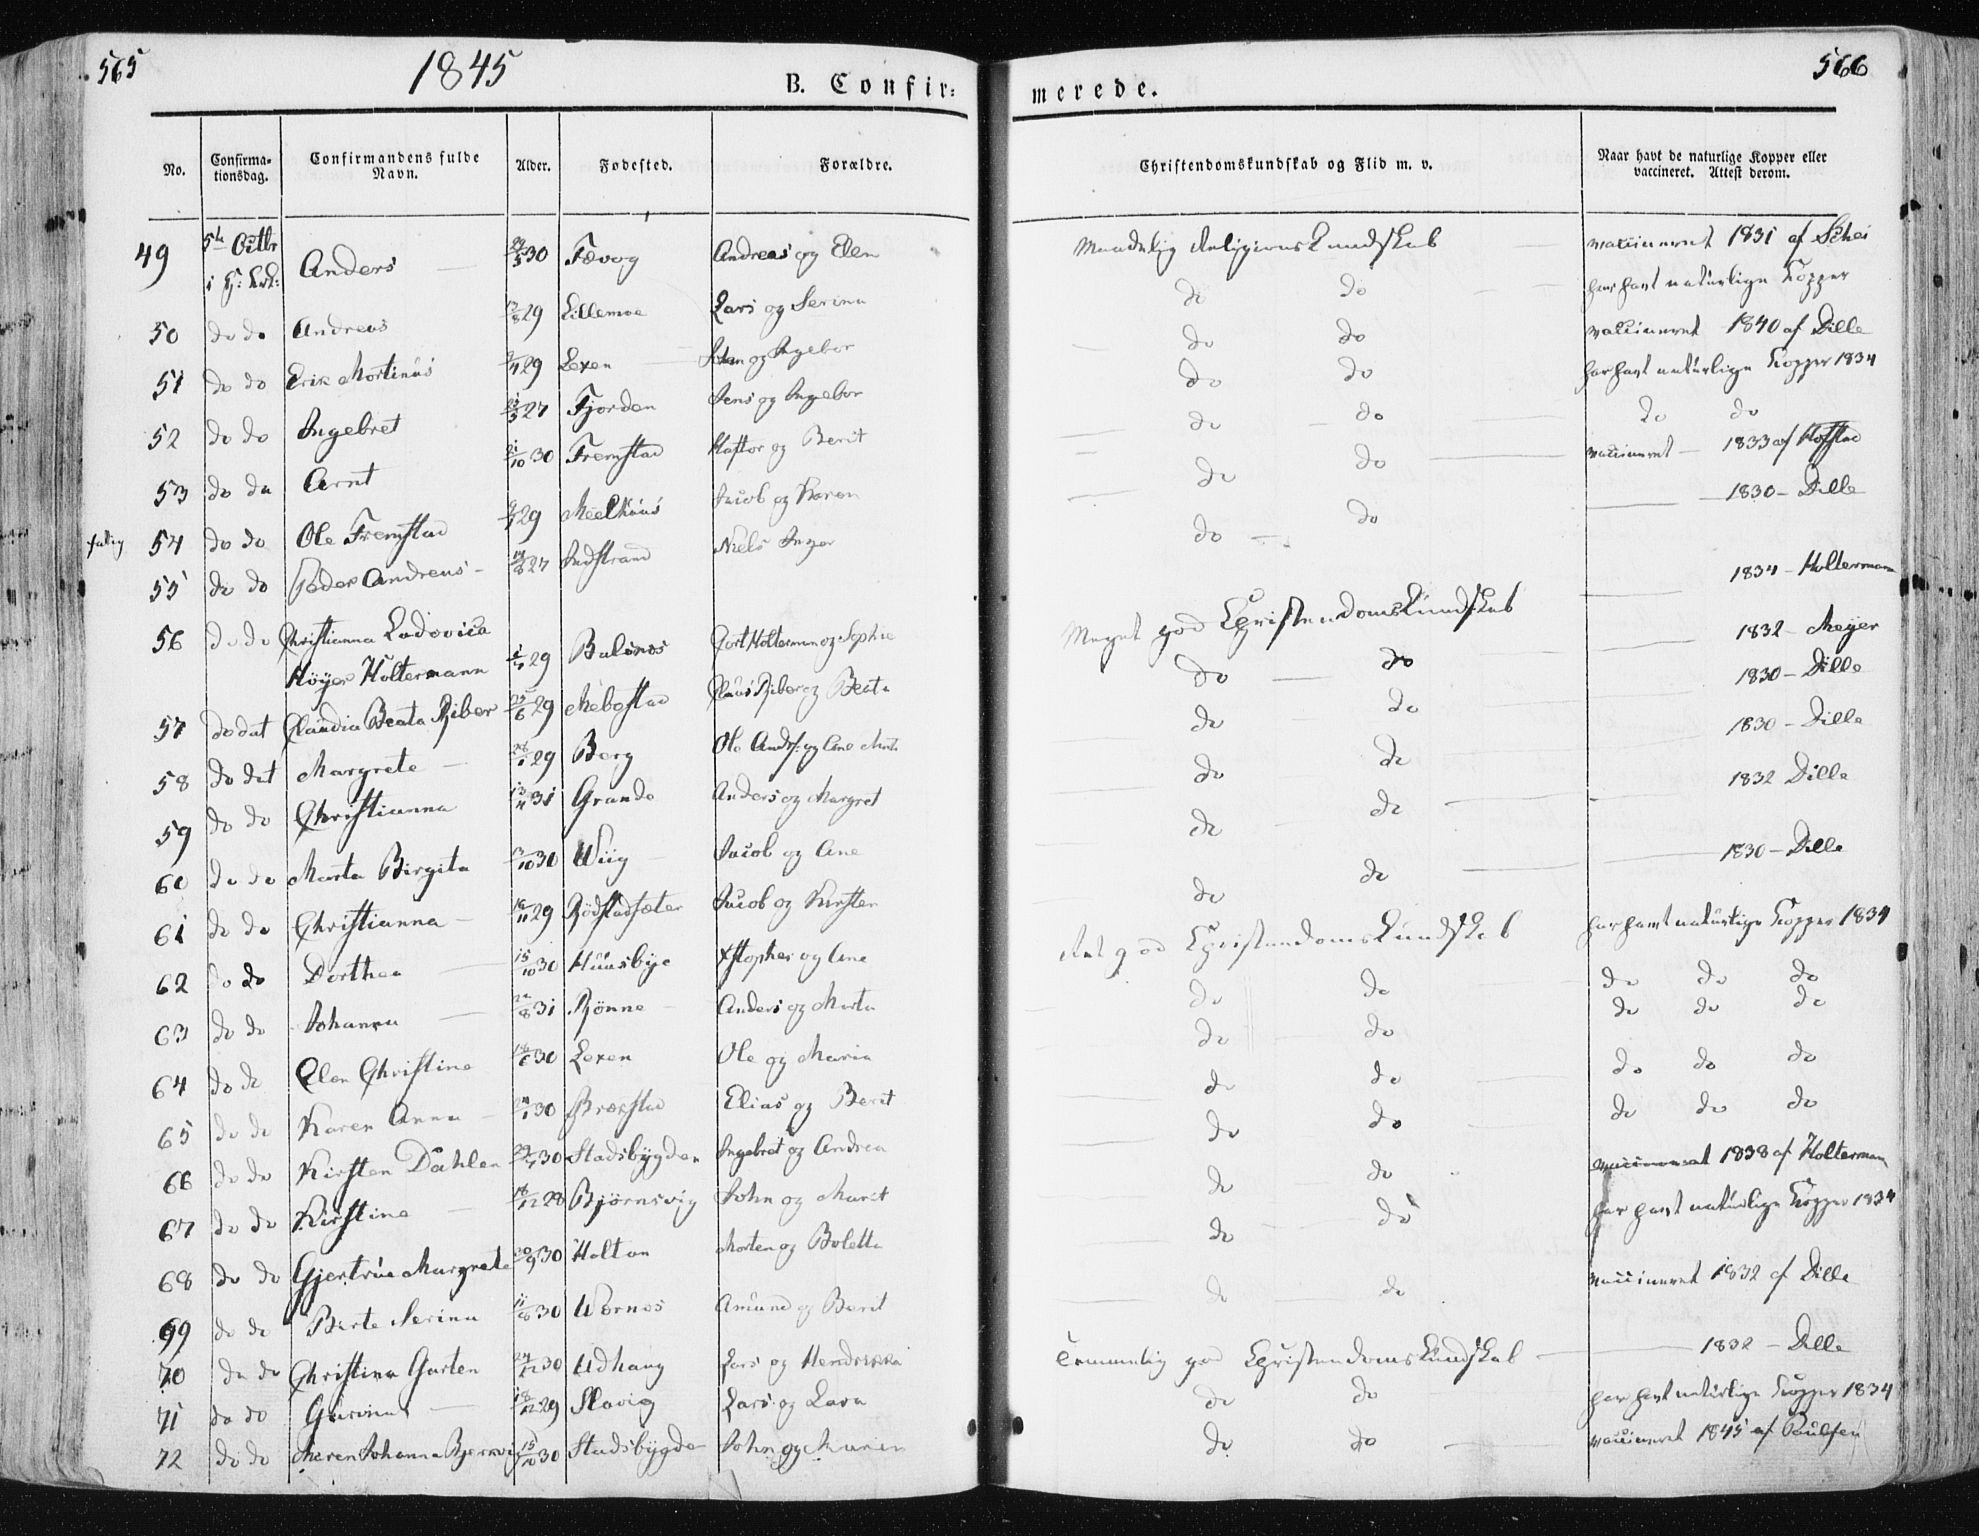 565
1845
B. Confir:
merede.
566
No.
Confirma-
tionsdag.
Confirmandens fulde
Navn.
Alder.
Fødested.
Forældre.
Christendomskundskab og Flid m. v.
Naar havt de naturlige Kopper eller
vaccineret. Attest derom.
49 5te Octbr Anders 30 Fævog Andreas og Elen Maadelig Religionskundskab vaccineret 1831 af Schei
50 do do Andreas 29 Lillemoe Lars og Serina do do har havt naturlige Kopper
51 do do Erik Mortinus 29 Lexen Johan og Ingebor do do vaccineret 1840 af Dille
52 do do Ingebret 27 Fjorden Jens og Ingebor do do har havt naturlige Kopper 1834
53 do do Arnt 30 Fremstad Haftor og Berit do do do do
54 do do Ole Fremstad 29 Meelhuus Jacob og Karen do do vaccineret 1833 af Hofstad
55 do do Peder Andreas 27 Indstrand Niels Inger do do 1830 - Dille
56 do do Christianna Lodovica
Höyer Holtermann 29 Balsnes Gort Holterman og Sophie Meget god Christendomskundskab 1834 - Holtermann
57 do dat Claudia Beata Riber 29 Mebostad Claus Riber og Beata do do 1832 - Meyer
58 do dat Margrete 29 Borg Ole Andr: og Ane Mart do do 1830 - Dille
59 do do Christianna 31 Grande Anders og Margret do do 1830 - Dille
60 do do Marta Birgita 30 Wiig Jacob og Ane do do 1832 Dille
61 do do Christianna 29 Rödstadsæter Jacob og Kirsten do do 1830 - Dille
62 do do Dorthea 30 Huusbye Xstopher og Ane Ret god Christendomskundskab har havt naturlige Kopper 1834
63 do do Johanna 31 Rönne Anders og Marta do do do do do
64 do do Elen Christine 30 Lexen Ole og Maria do do do do do
65 do do Karen Anna 30 Brækstad Elias og Berit do do do do do
66 do do Kirsten Dahlen 30 Stadsbygden Ingebret og Andrea do do do do do
67 do do Kirstine 28 Bjørnsvig John og Marit do do vaccineret 1838 af Holterman
68 do do Gjertrue Margrete 30 Holton Morten og Boletta do do har havt naturlige Kopper 1834
69 do do Berte Serina 30 Wernes Amund og Berit do do vaccineret 1832 af Dille
70 do do Christina Garten 30 Udhaug Lars og Hendrikka Temmelig god Christendomskundskab 1832 - Dille
71 do do 29 Slavig Lars og Lava do do har havt naturlige Kopper 1834
72 do do Maren Johanna 30 Stadsbygde John og Maren do do vaccineret 1845 af Paulsen